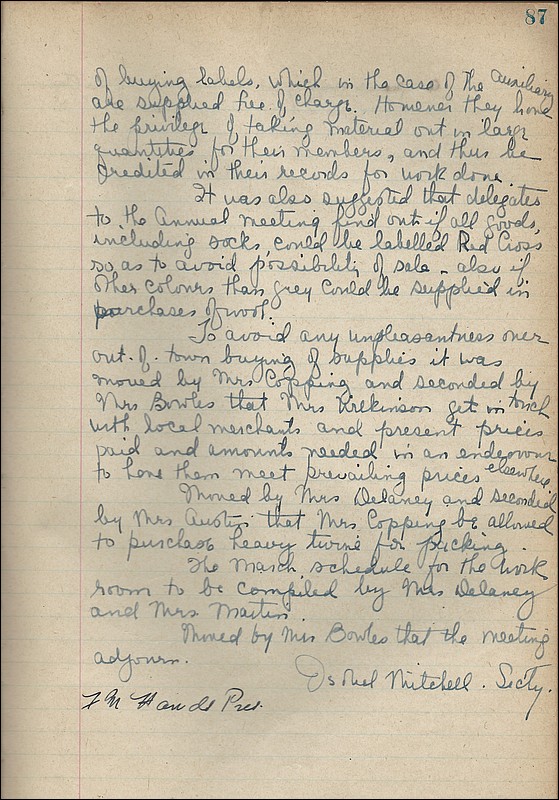 87
of buying labels, which in the case of the Auxiliary
are supplied free of charge. However they have
the privilege of taking material out in large
quantities for their members, and thus be
credited in their records for work done.
It was also suggested that delegates
to the Annual meeting find out if all goods,
including socks, could be labelled Red Cross
so as to avoid possibility of sale - also if
other colours than grey could be supplied in
purchases of wool.
To avoid any unpleasantness over
out-of-town buying of supplies it was
moved by Mrs Copping and seconded by
Mrs Bowles that Mrs Kirkinson get in touch
with local merchants and present prices
paid and amounts needed in an endeavour
to have them meet prevailing prices elsewhere.
Moved by Mrs Delaney and seconded
by Mrs Austin that Mrs Copping be allowed
to purchase heavy twine for packing.
The March schedule for the work
room to be compiled by Mrs Delaney
and Mrs Martin.
Moved by Mrs Bowles that the meeting
adjourn.
Isobel Mitchell. Sec'ty.
Pres.